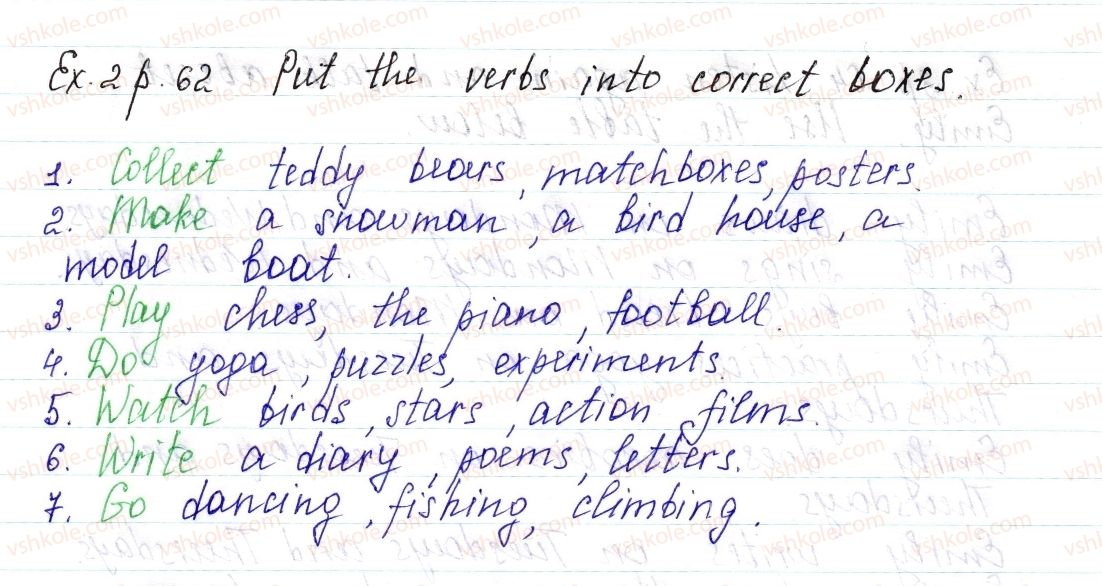 Ex. 2 p. 62 Put the verbs into correct boxes.
1. Collect teddy bears, matchboxes, posters.
2. Make a snowman, a bird house, a
model boat.
3. Play chess, the piano, football.
4. Do yoga, puzzles, experiments.
5. Watch birds, stars, action films.
6. Write a diary, poems, letters.
7. Go dancing, fishing, climbing.
vshkole.com